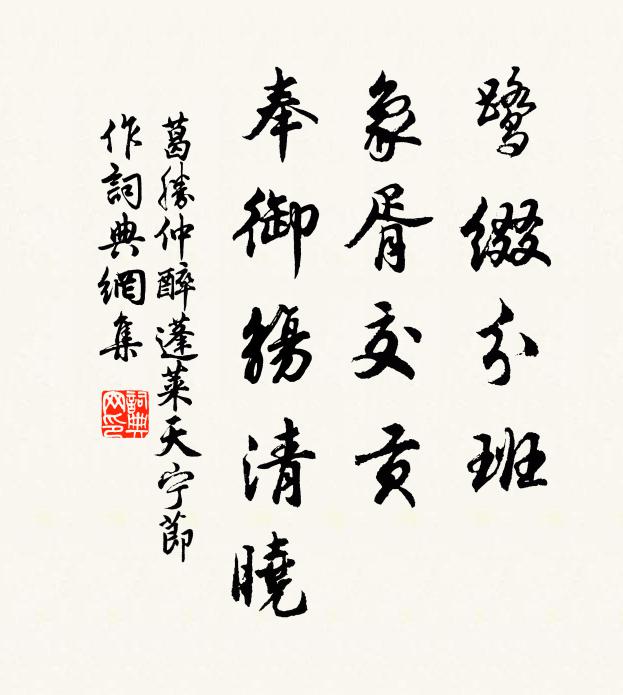 鹭缀分班
象胥交贡
奉御觞清曉
葛勝仲醉蓬萊天宁節
作詞典網集
詞典網印